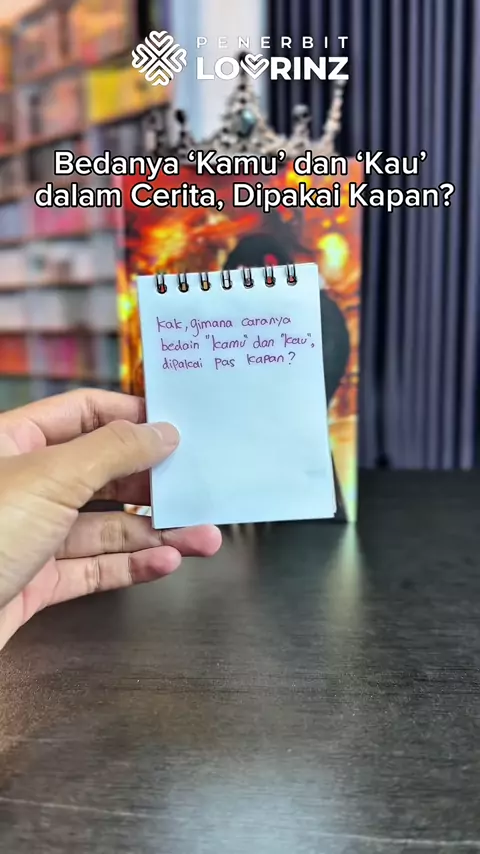 PENERBIT
LOVRINZ
Bedanya ‘Kamu’ dan ‘Kau’
dalam Cerita, Dipakai Kapan?
kak, gimana caranya
bedain "kamu" dan "kau",
dipakai pas kapan?